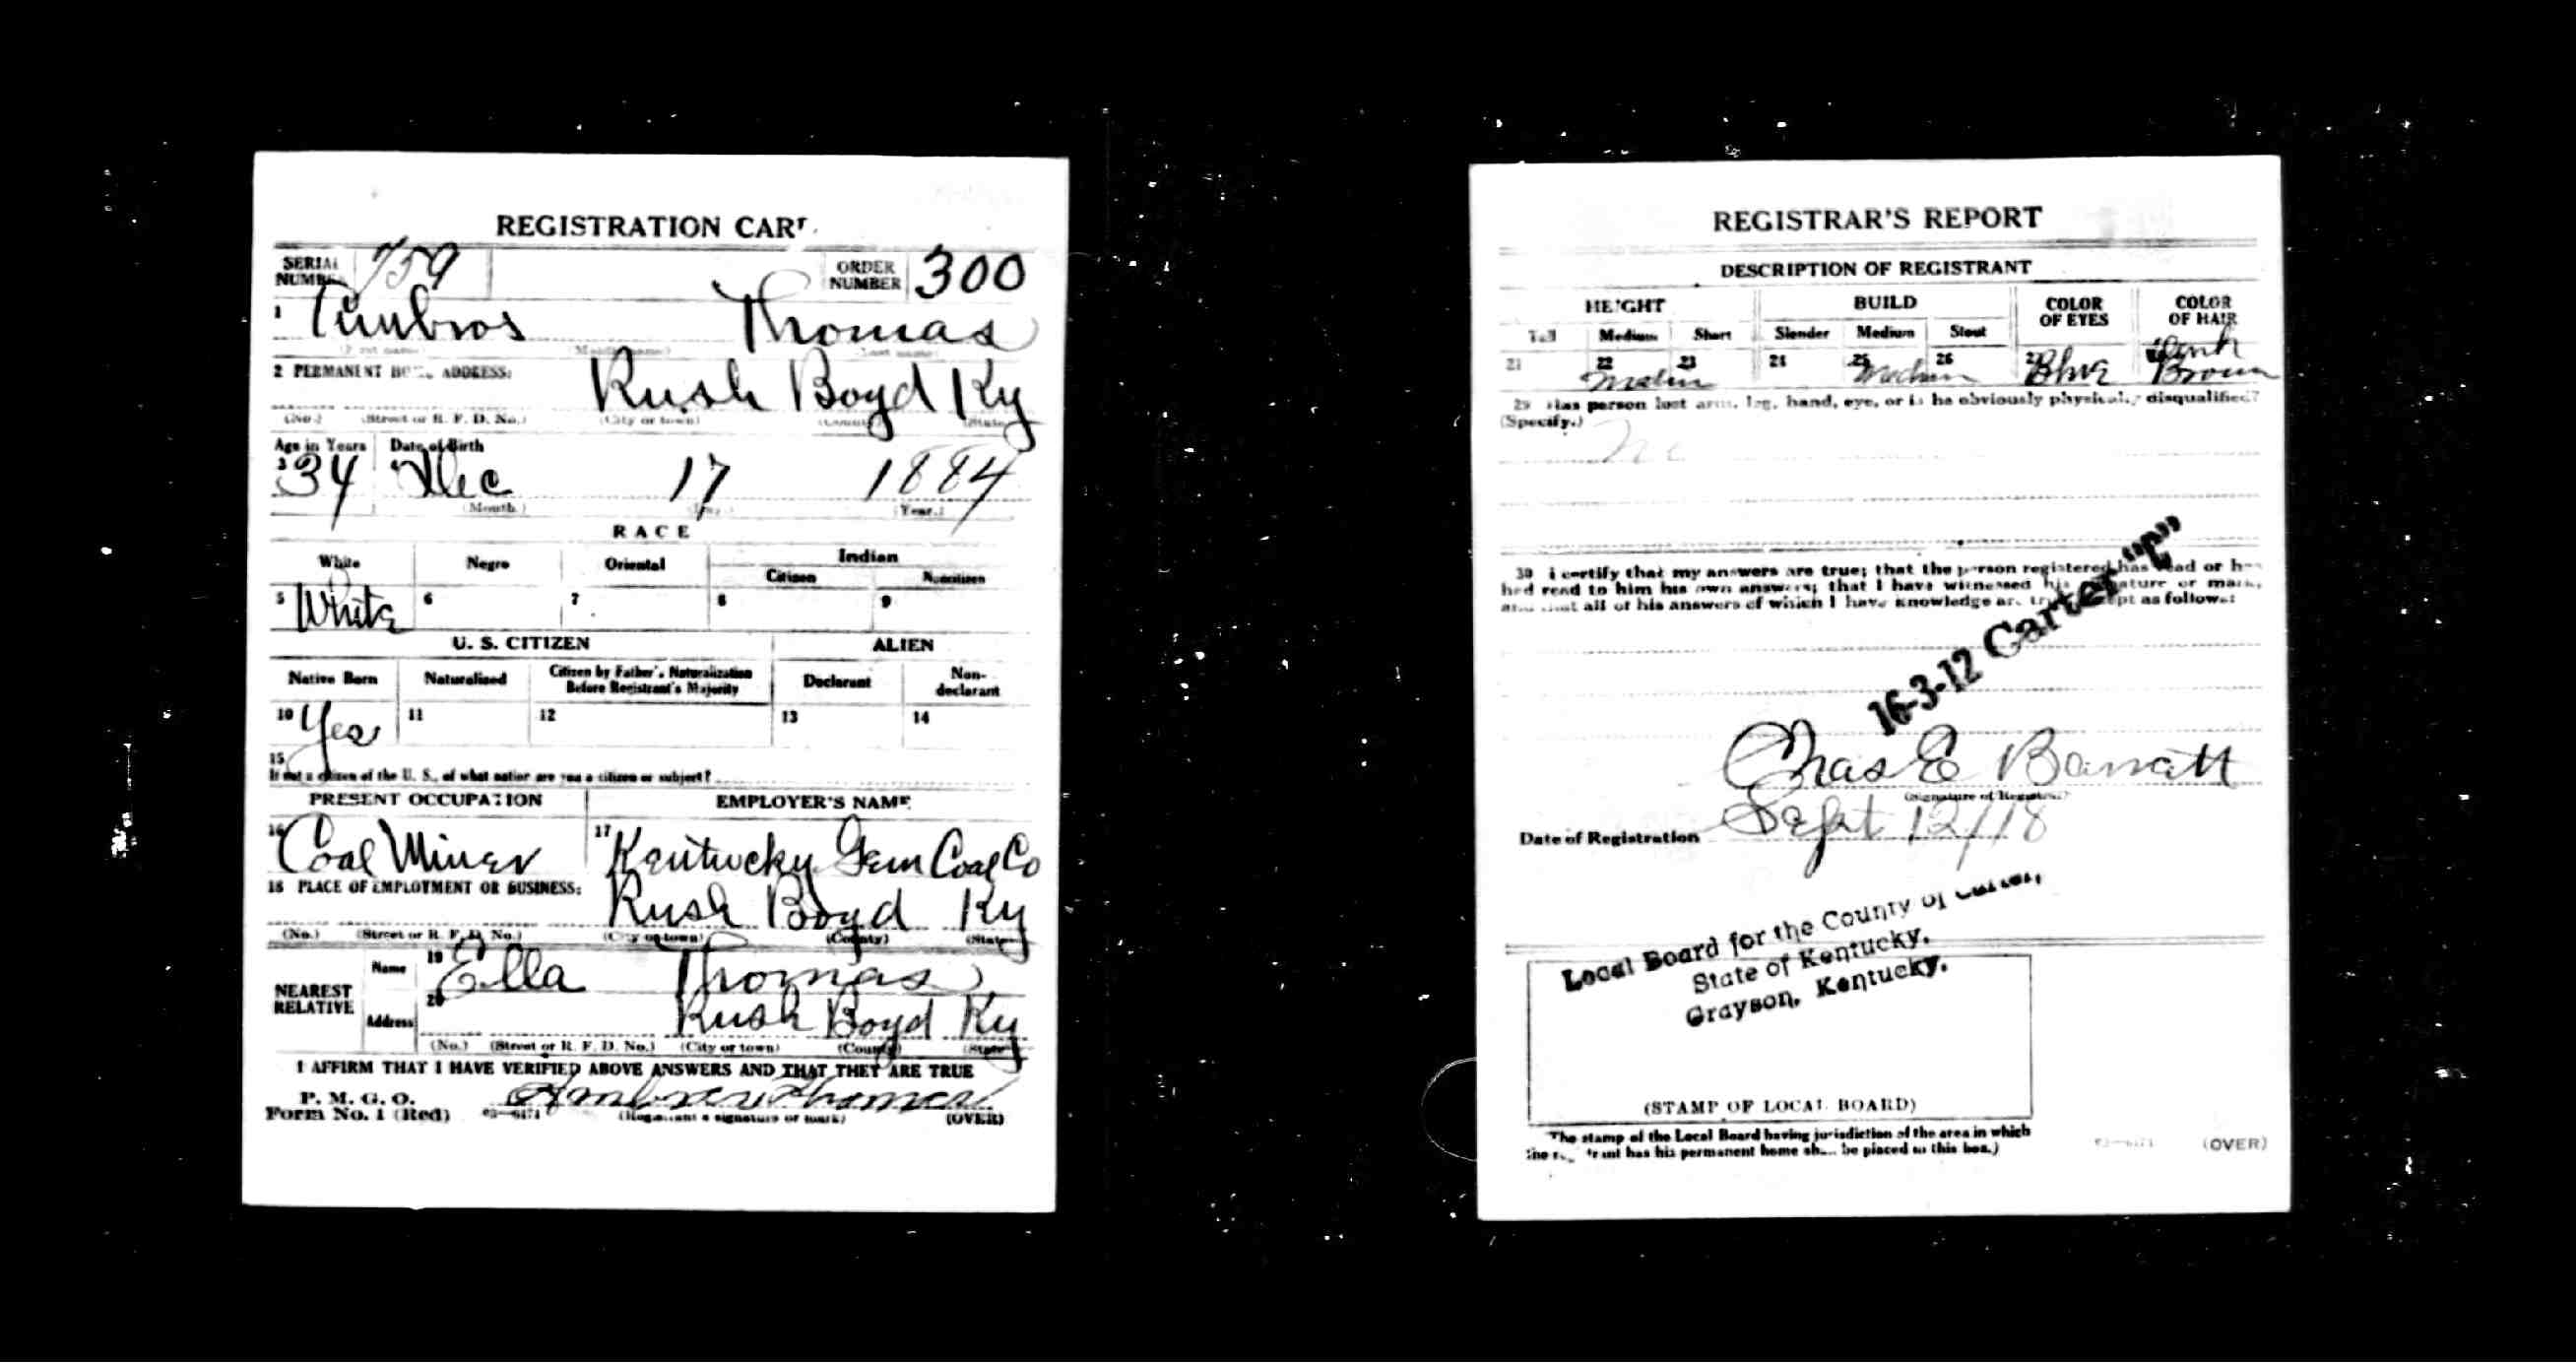 REGISTRATION CARD
SERIAL NUMBER 759 ORDER NUMBER 300
1 Timbros Thomas
(First name) (Middle name) (Last name)
2 PERMANENT HOME ADDRESS: Rush Boyd Ky
(No.) (Street or R. F. D. No.) (City or town) (County) (State)
Age in Years Date of Birth
3 34 Dec 17 1884
(Month.) (Day.) (Year.)
RACE
White Negro Oriental Indian
Citizen Noncitizen
5 White 6 7 8 9
U. S. CITIZEN ALIEN
Native Born Naturalized Citizen by Father's Naturalization Before Registrant's Majority Declarant Non-declarant
10 Yes 11 12 13 14
15
If not a citizen of the U. S., of what nation are you a citizen or subject?
PRESENT OCCUPATION EMPLOYER'S NAME
16 Coal Miner 17 Kentucky Gem Coal Co
18 PLACE OF EMPLOYMENT OR BUSINESS: Rush Boyd Ky
(No.) (Street or R. F. D. No.) (City or town) (County) (State)
NEAREST RELATIVE Name 19 Ella Thomas
Address 20 Rush Boyd Ky
(No.) (Street or R. F. D. No.) (City or town) (County) (State)
I AFFIRM THAT I HAVE VERIFIED ABOVE ANSWERS AND THAT THEY ARE TRUE
P. M. G. O.
Form No. 1 (Red) 03—6171 Thomas
(Registrant's signature or mark) (OVER)
REGISTRAR'S REPORT
DESCRIPTION OF REGISTRANT
HEIGHT BUILD COLOR OF EYES COLOR OF HAIR
Tall Medium Short Slender Medium Stout
21 22 23 24 25 26 27 Blue Dark
Brown
29 Has person lost arm, leg, hand, eye, or is he obviously physically disqualified?
(Specify.)
No
30 I certify that my answers are true; that the person registered has read or has
had read to him his own answers; that I have witnessed his signature or mark,
and that all of his answers of which I have knowledge are true, except as follows:
16-3-12 Carter "C"
Chas E Barratt
(Signature of Registrar)
Date of Registration Sept 12/18
Local Board for the County of Carter,
State of Kentucky.
Grayson, Kentucky.
(STAMP OF LOCAL BOARD)
(The stamp of the Local Board having jurisdiction of the area in which
the registrant has his permanent home shall be placed in this box.)
03—6171 (OVER)